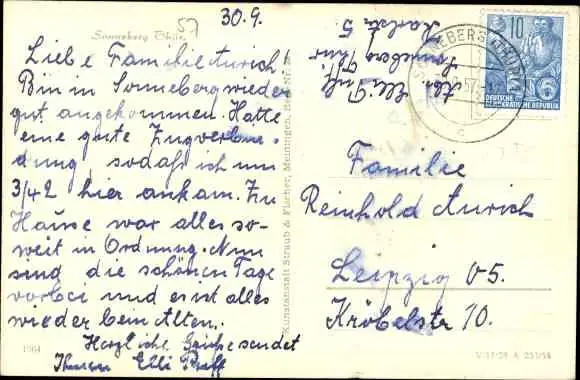 57
30.9.
Sonneberg Thür.
Liebe Familie Aurich!
Bin in Sonneberg wieder
gut angekommen. Hatte
eine gute Zugverbin-
dung, sodaß ich um
3/42 hier ankam. Zu
Hause war alles so-
weit in Ordnung. Nun
sind die schönen Tage
vorbei und es ist alles
wieder beim Alten.
Herzliche Grüße sendet
Ihnen Elli Puff
1964
Kunstanstalt Straub & Fischer, Meiningen
Abs. Elli Puff
Sonneberg Thür
Karlstr 5
SONNEBERG (THÜR)
10
DEUTSCHE
DEMOKRATISCHE REPUBLIK
Familie
Reinhold Aurich
Leipzig O5.
Kröbelstr 10.